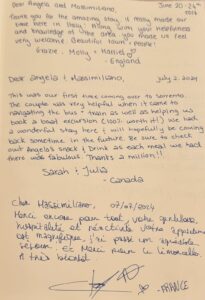 Dear Angela and Massimiliano, June 20-24th
Thank you for the amazing stay, it really made our
time here in Italy. Along with your helpfulness
and knowledge of the area you made us feel
very welcome. Beautiful town + people!
Grazie. Molly + Harriet
- England
Dear Angela & Massimiliano, July 2, 2024
This was our first time coming over to Sorrento.
The couple was very helpful when it came to
navigating the bus - them as well as helping us
book a boat excursion (100% worth it!) We had
a wonderful stay here & will hopefully be coming
back sometime in the future. Be sure to check
out Angelo's snack & drink as each meal we had
there was fabulous. Thanks a million!!
Sarah & Julia
- Canada
Cher Massimiliano, 07/07/2024
Merci encore pour tout votre gentillesse,
hospitalité et votre appartement
est magnifique, j'ai passé un agréable
séjour. Et Merci pour le limoncello.
A très bientôt
- FRANCE